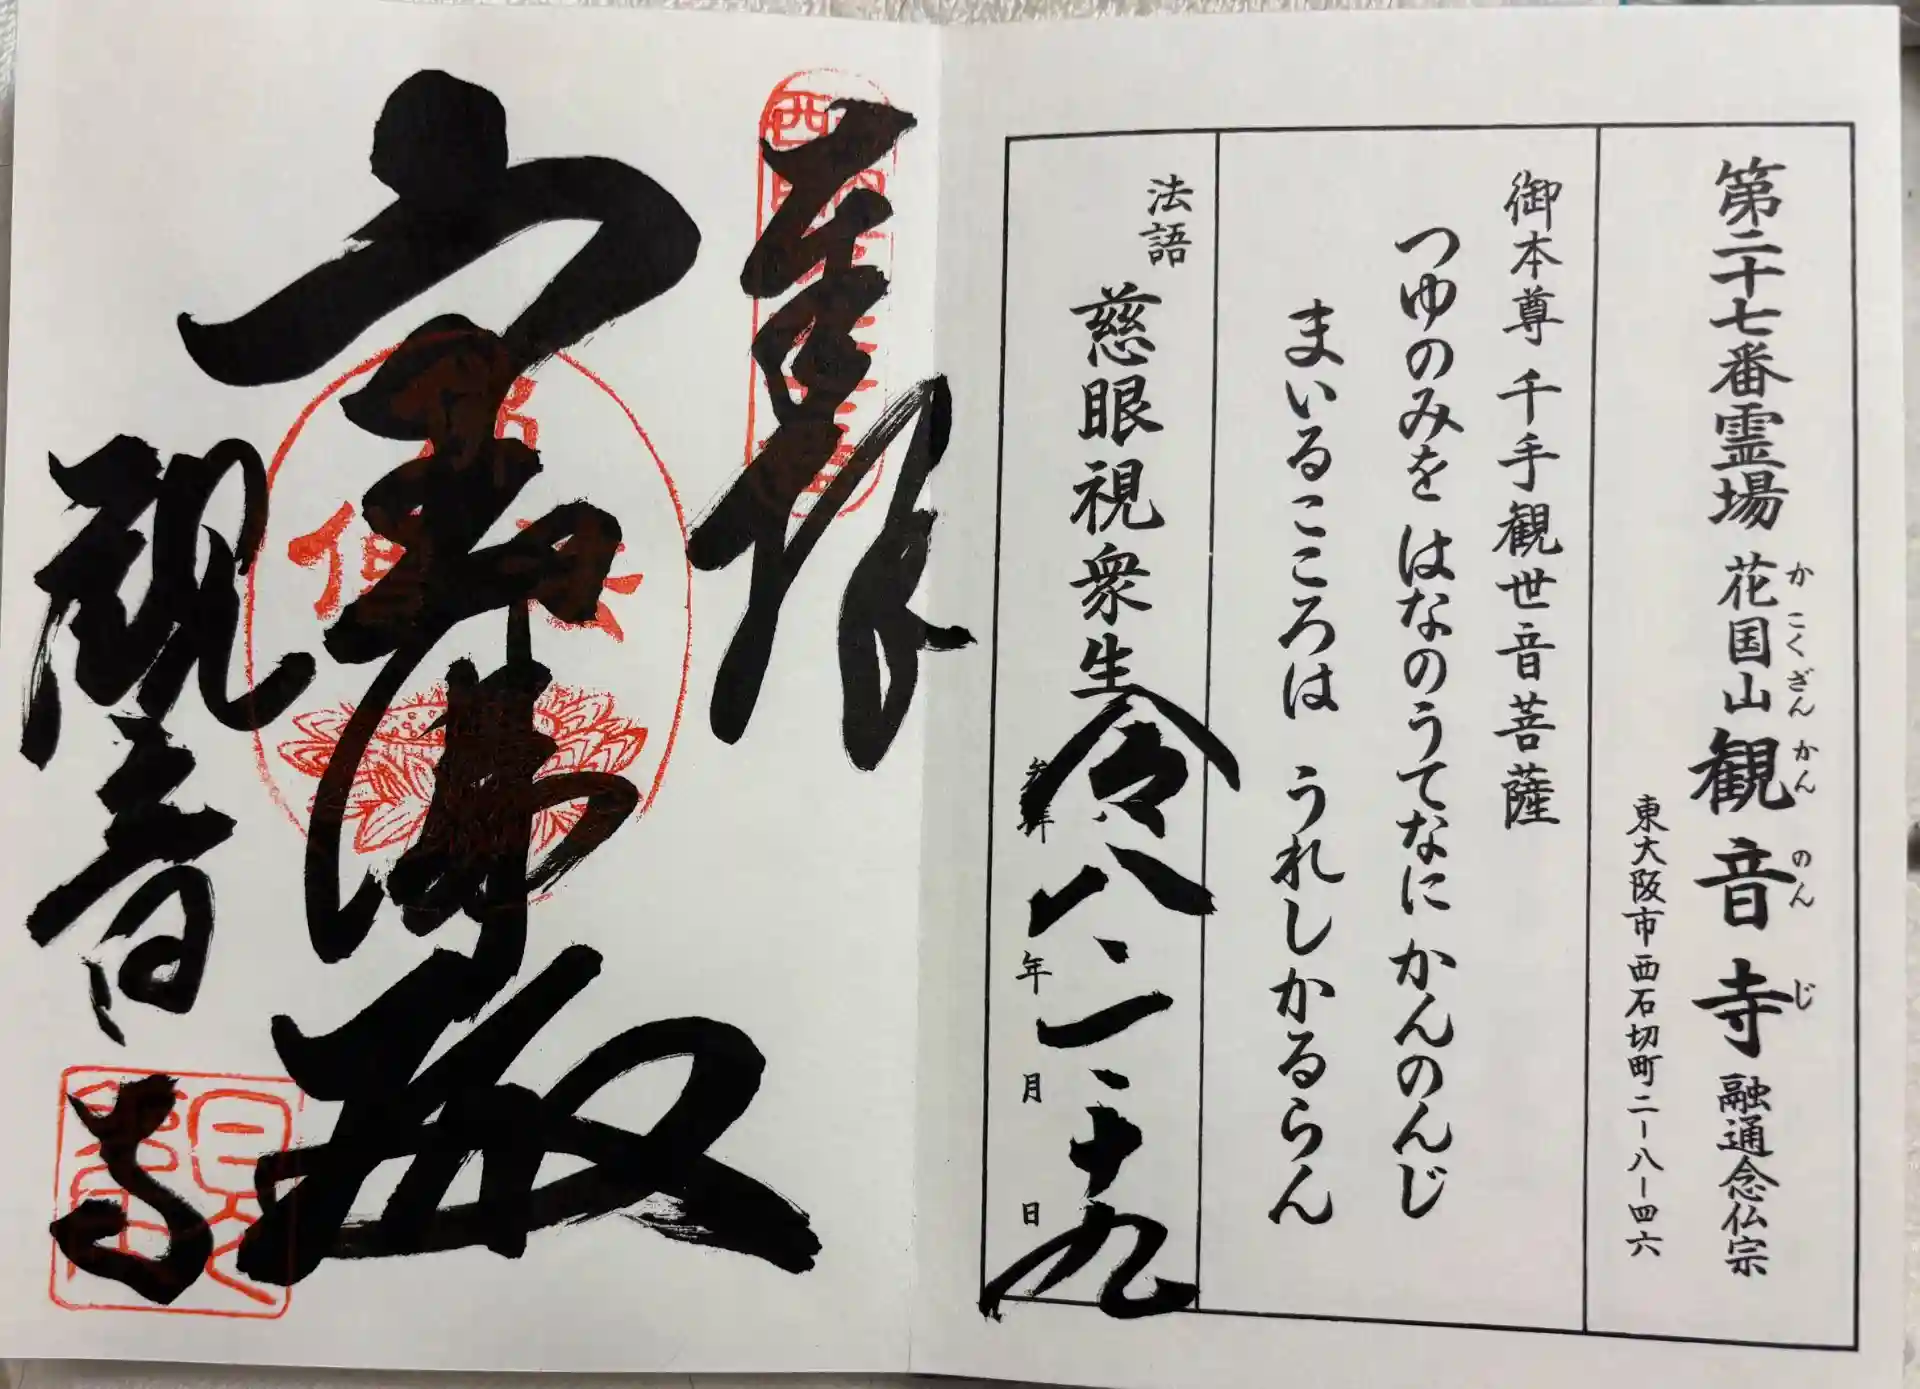 第二十七番霊場 花国山観音寺 融通念仏宗
かこくざんかんのんじ
東大阪市西石切町二-八-四六
御本尊 千手観世音菩薩
つゆのみを はなのうてなに かんのんじ
まいるこころは うれしかるらん
法語 慈眼視衆生
令八、一、十九
年 月 日
奉拝
観音寺